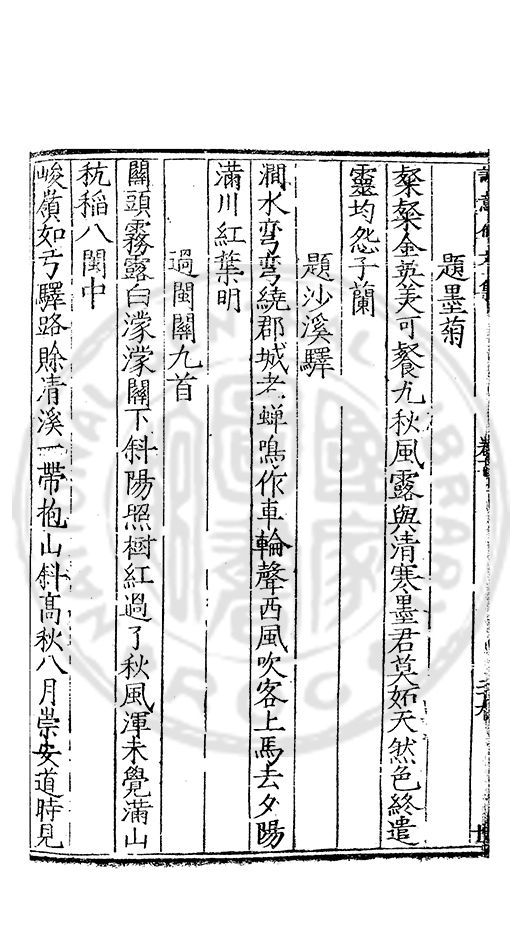 題墨菊
粲粲金英美可餐九秋風露與清寒墨君莫妬天然色終遣
靈均怨子蘭
題沙溪驛
澗水弯弯繞郡城老蟬鳴作車輪聲西風吹客上馬去夕陽
滿川紅葉明
過閩關九首
關頭霧露白濛濛關下斜陽照樹紅過了秋風渾未覺滿山
秔稻八閩中
峻嶺如弓驛路賒清溪一帶抱山斜高秋八月崇安道時見